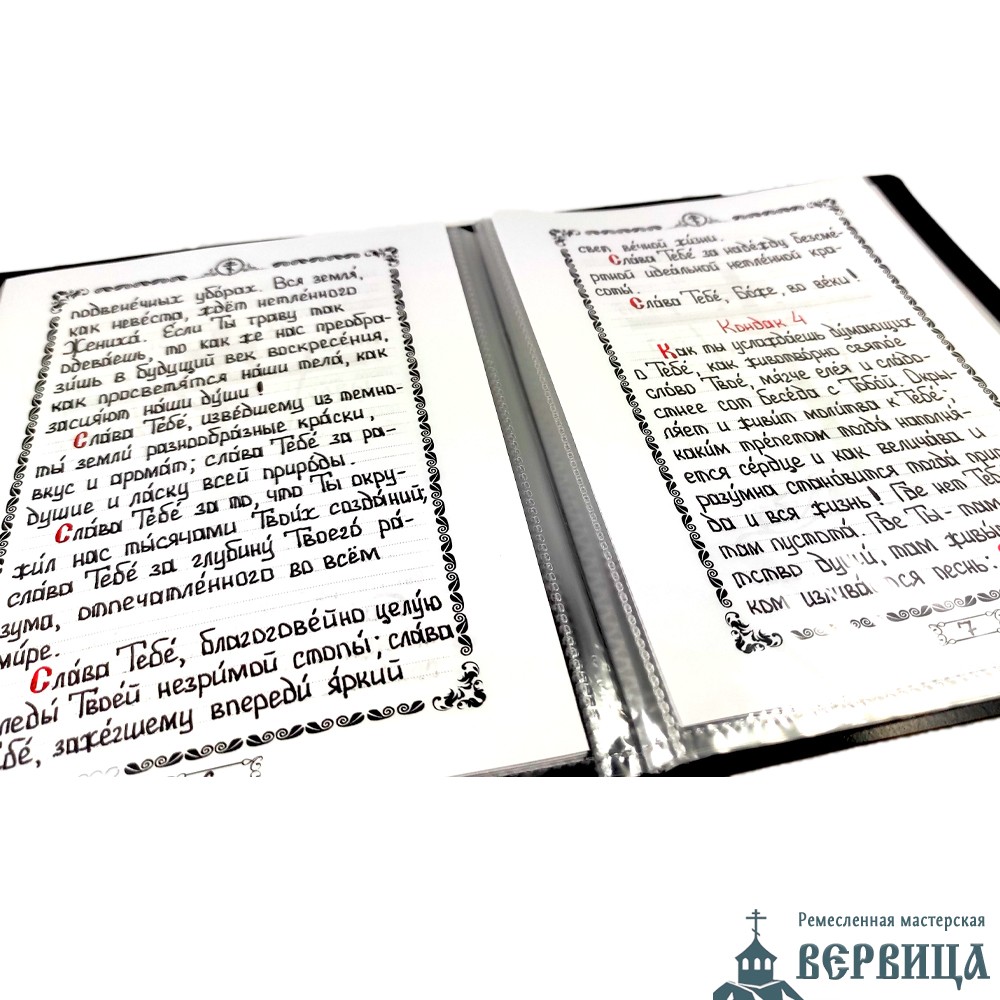 подвене́чных убо́рах. Вся земля́,
как неве́ста, ждёт нетле́нного
Жениха́. Если Ты траву так
одева́ешь, то как же нас преобра-
зи́шь в будущий век воскресе́ния,
как просветя́тся на́ши тела́, как
засия́ют на́ши ду́ши!
Сла́ва Тебе́, изве́дшему из темно-
ты́ земли́ разнообра́зные кра́ски,
вкус и арома́т; сла́ва Тебе́ за ра-
душие и ла́ску всей приро́ды.
Сла́ва Тебе́ за то, что Ты окру-
жи́л нас ты́сячами Твои́х созда́ний;
сла́ва Тебе́ за глубину́ Твоего́ ра́-
зума, отпечатле́нного во всём
мире.
Сла́ва Тебе́, благогове́йно целу́ю
следы́ Твое́й незри́мой стопы́; сла́ва
Тебе́, заже́гшему впереди́ я́ркий
свет ве́чной жи́зни.
Сла́ва Тебе́ за наде́жду безсме́-
ртной идеа́льной нетле́нной кра-
соты́.
Сла́ва Тебе́, Бо́же, во ве́ки!
Кондак 4
Как ты услажда́ешь ду́мающих
о Тебе́, как животво́рно свято́е
сло́во Твое́, мя́гче еле́я и сла́до-
стнее сот бесе́да с Тобо́й. Окры-
ля́ет и живи́т моли́тва к Тебе́;
каки́м тре́петом тогда́ наполня́-
ется се́рдце и как велича́ва и
разу́мна стано́вится тогда́
да и вся жизнь! Где нет
там пустота́. Где Ты - там
тство души́, там
ком излива́ется песнь:
7
Ремесленная мастерская
ВЕРВИЦА